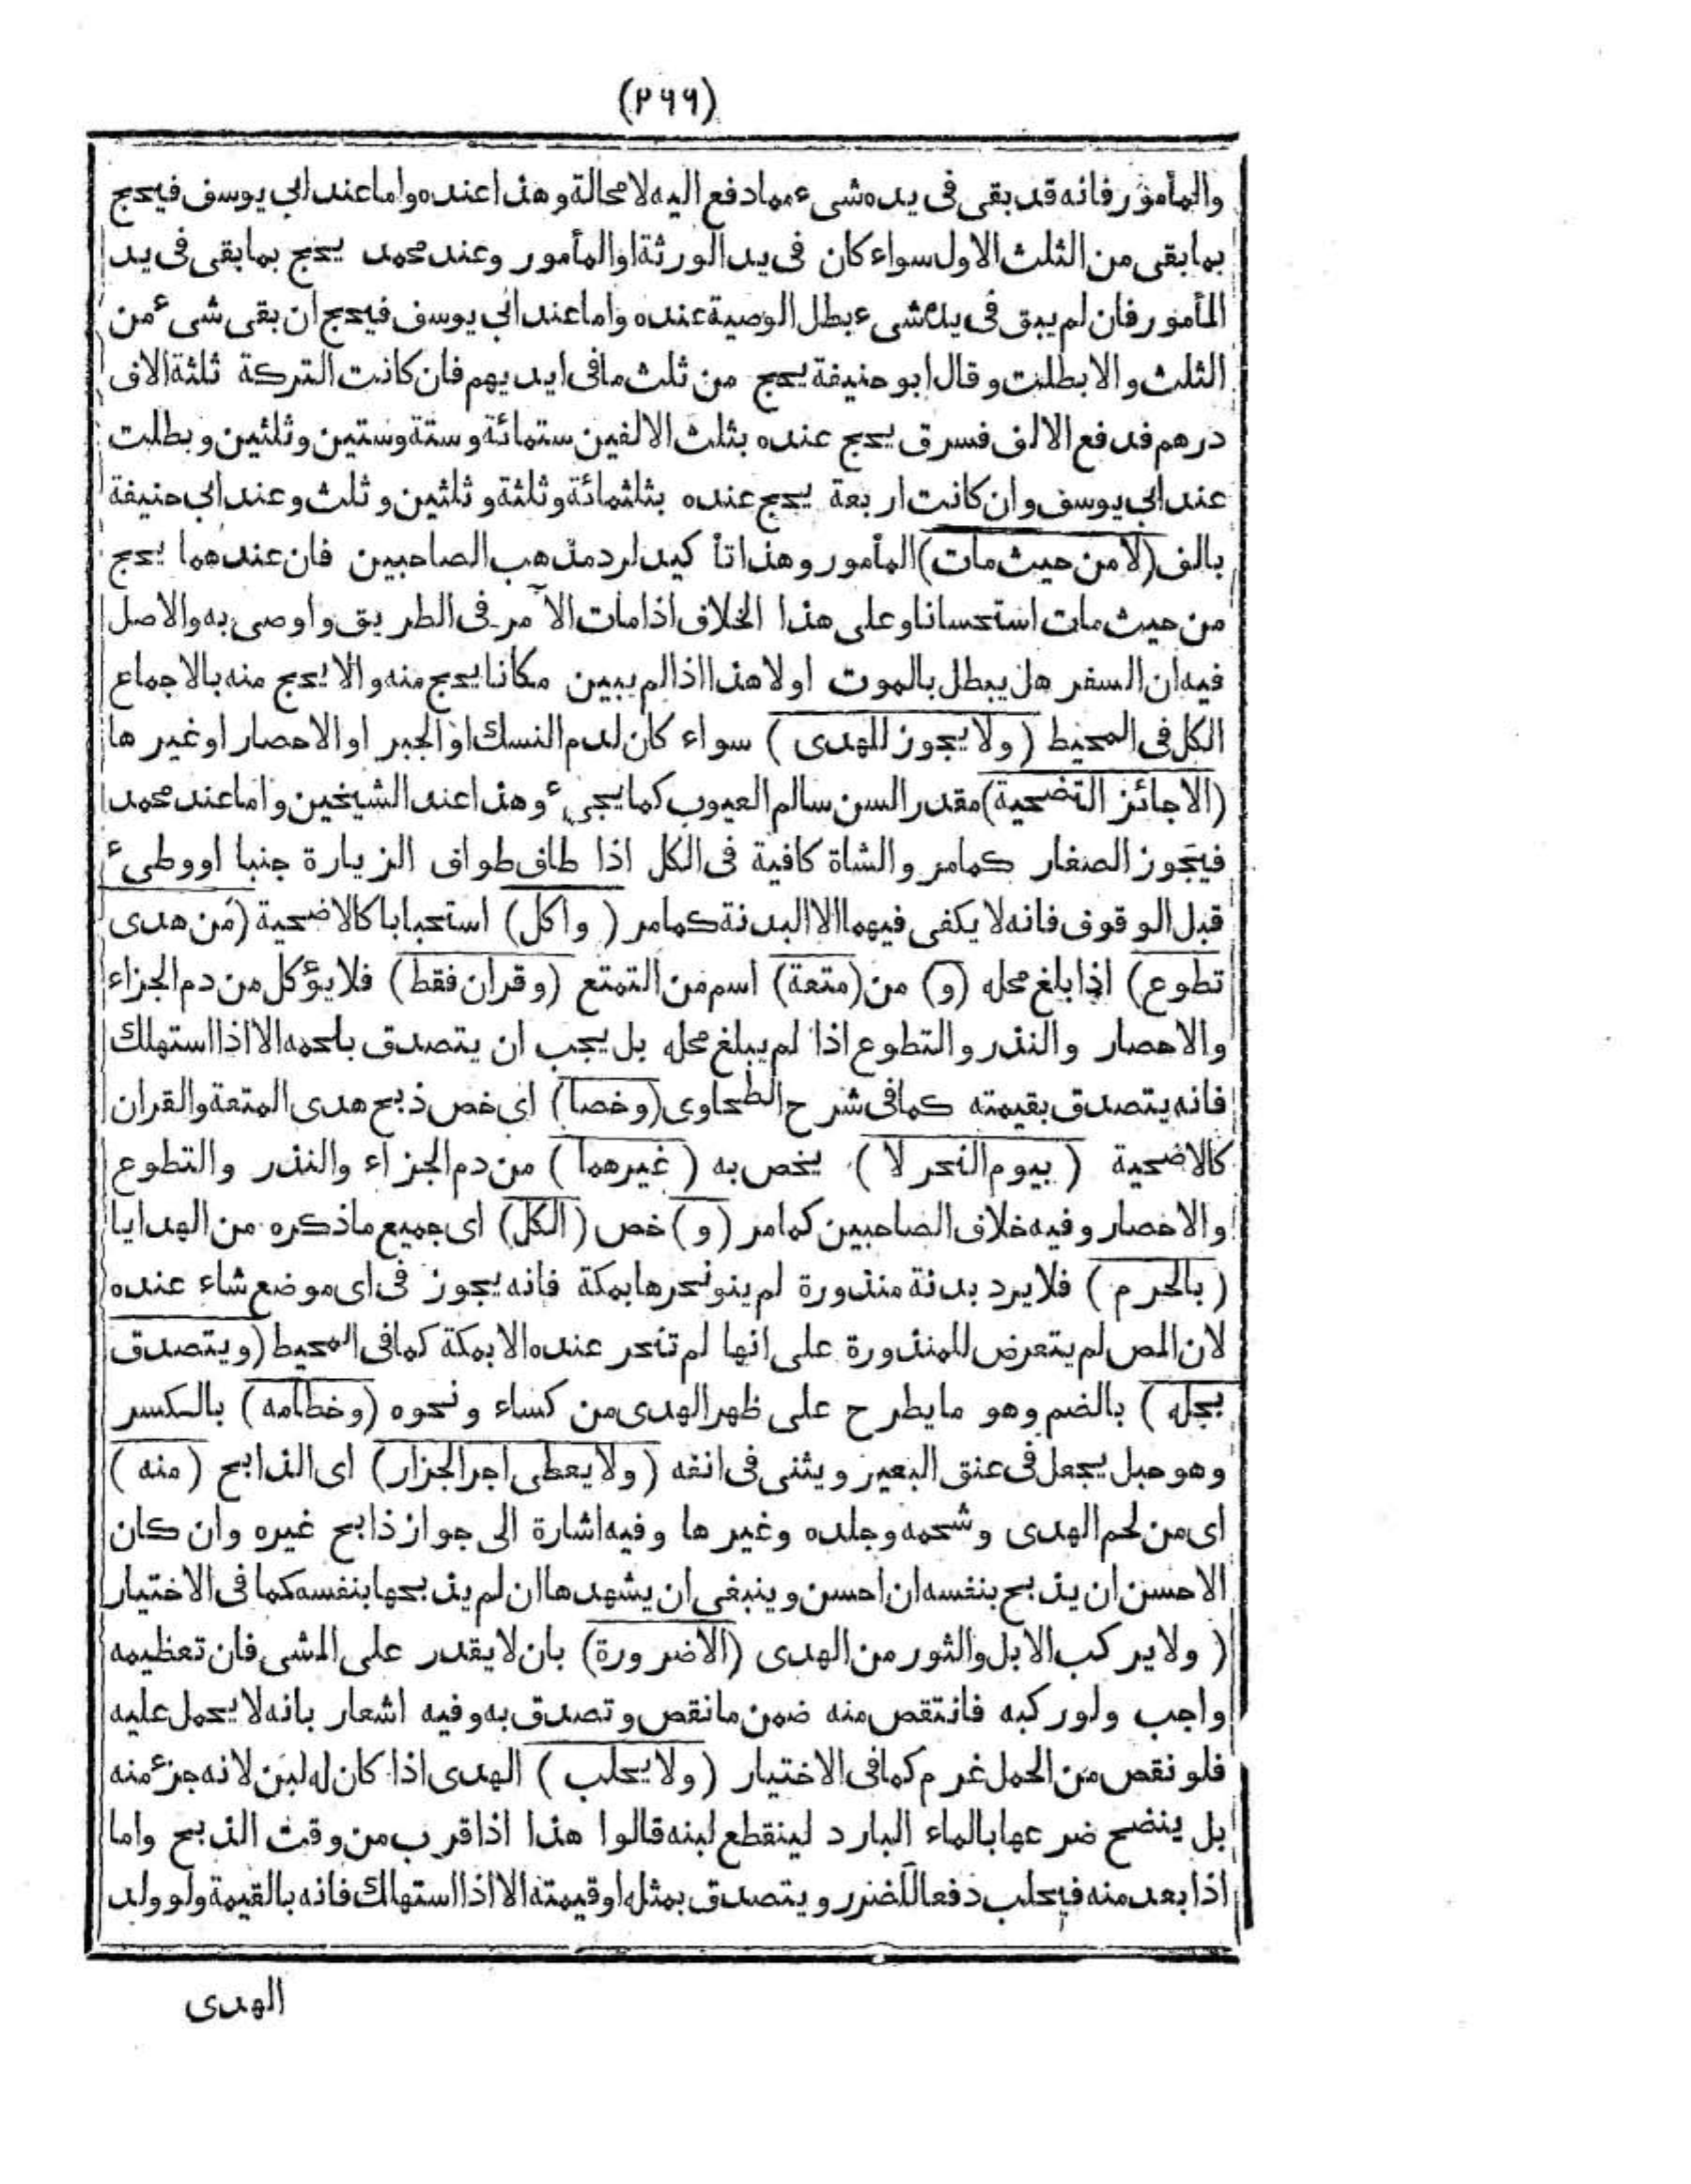 (٢٦٦)
والمأمور فانه قد بقى فى يده شىء مما دفع اليه لا محالة وهذا عنده واما عند ابى يوسف فيحج
بما بقى من الثلث الاول سواء كان فى يد الورثة او المأمور وعند محمد يحج بما بقى فى يد
المأمور فان لم يبق فى يده شىء بطل الوصية عنده واما عند ابى يوسف فيحج ان بقى شىء من
الثلث والا بطلت وقال ابو حنيفة يحج من ثلث ما فى ايديهم فان كانت التركة ثلثة الاف
درهم فدفع الالف فسرق يحج عنده بثلث الالفين ستمائة وستة وستين وثلثين وبطلت
عند ابى يوسف وان كانت اربعة يحج عنده بثلثمائة وثلثة وثلثين وثلث وعند ابى حنيفة
بالف (لا من حيث مات) المأمور وهذا تأكيد لرد مذهب الصاحبين فان عندهما يحج
من حيث مات استحسانا وعلى هذا الخلاف اذا مات الآمر فى الطريق واوصى به والاصل
فيه ان السفر هل يبطل بالموت اولا هذا اذا لم يبين مكانا يحج منه والا يحج منه بالاجماع
الكل فى المحيط (ولا يجوز للهدى) سواء كان لدم النسك او الجبر او الاحصار او غيرها
(الا جائز التضحية) مقدر السن سالم العيوب كما يجىء وهذا عند الشيخين واما عند محمد
فيجوز الصغار كما مر والشاة كافية فى الكل اذا طاف طواف الزيارة جنبا او وطىء
قبل الوقوف فانه لا يكفى فيهما الا البدنة كما مر (واكل) استحبابا كالاضحية (من هدى
تطوع) اذا بلغ محله (و) من (متعة) اسم من التمتع (وقران فقط) فلا يؤكل من دم الجزاء
والاحصار والنذر والتطوع اذا لم يبلغ محله بل يجب ان يتصدق بلحمه الا اذا استهلك
فانه يتصدق بقيمته كما فى شرح الطحاوى (وخصا) اى خص ذبح هدى المتعة والقران
كالاضحية (بيوم النحر لا) يخص به (غيرهما) من دم الجزاء والنذر والتطوع
والاحصار وفيه خلاف الصاحبين كما مر (و) خص (الكل) اى جميع ما ذكره من الهدايا
(بالحرم) فلا يرد بدنة منذورة لم ينو نحرها بمكة فانه يجوز فى اى موضع شاء عنده
لان المص لم يتعرض للمنذورة على انها لم تنحر عنده الا بمكة كما فى المحيط (ويتصدق
بجله) بالضم وهو ما يطرح على ظهر الهدى من كساء ونحوه (وخطامه) بالكسر
وهو حبل يجعل فى عنق البعير ويثنى فى انفه (ولا يعطى اجر الجزار) اى الذابح (منه)
اى من لحم الهدى وشحمه وجلده وغيرها وفيه اشارة الى جواز ذابح غيره وان كان
الاحسن ان يذبح بنفسه ان احسن وينبغى ان يشهدها ان لم يذبحها بنفسه كما فى الاختيار
(ولا يركب الابل والثور من الهدى (الا ضرورة) بان لا يقدر على المشى فان تعظيمه
واجب ولو ركبه فانتقص منه ضمن ما نقص وتصدق به وفيه اشعار بانه لا يحمل عليه
فلو نقص من الحمل غرم كما فى الاختيار (ولا يحلب) الهدى اذا كان له لبن لانه جزء منه
بل ينضح ضرعها بالماء البارد لينقطع لبنه قالوا هذا اذا قرب من وقت الذبح واما
اذا بعد منه فيحلب دفعا للضرر ويتصدق بمثله او قيمته الا اذا استهلك فانه بالقيمة ولو ولد
الهدى